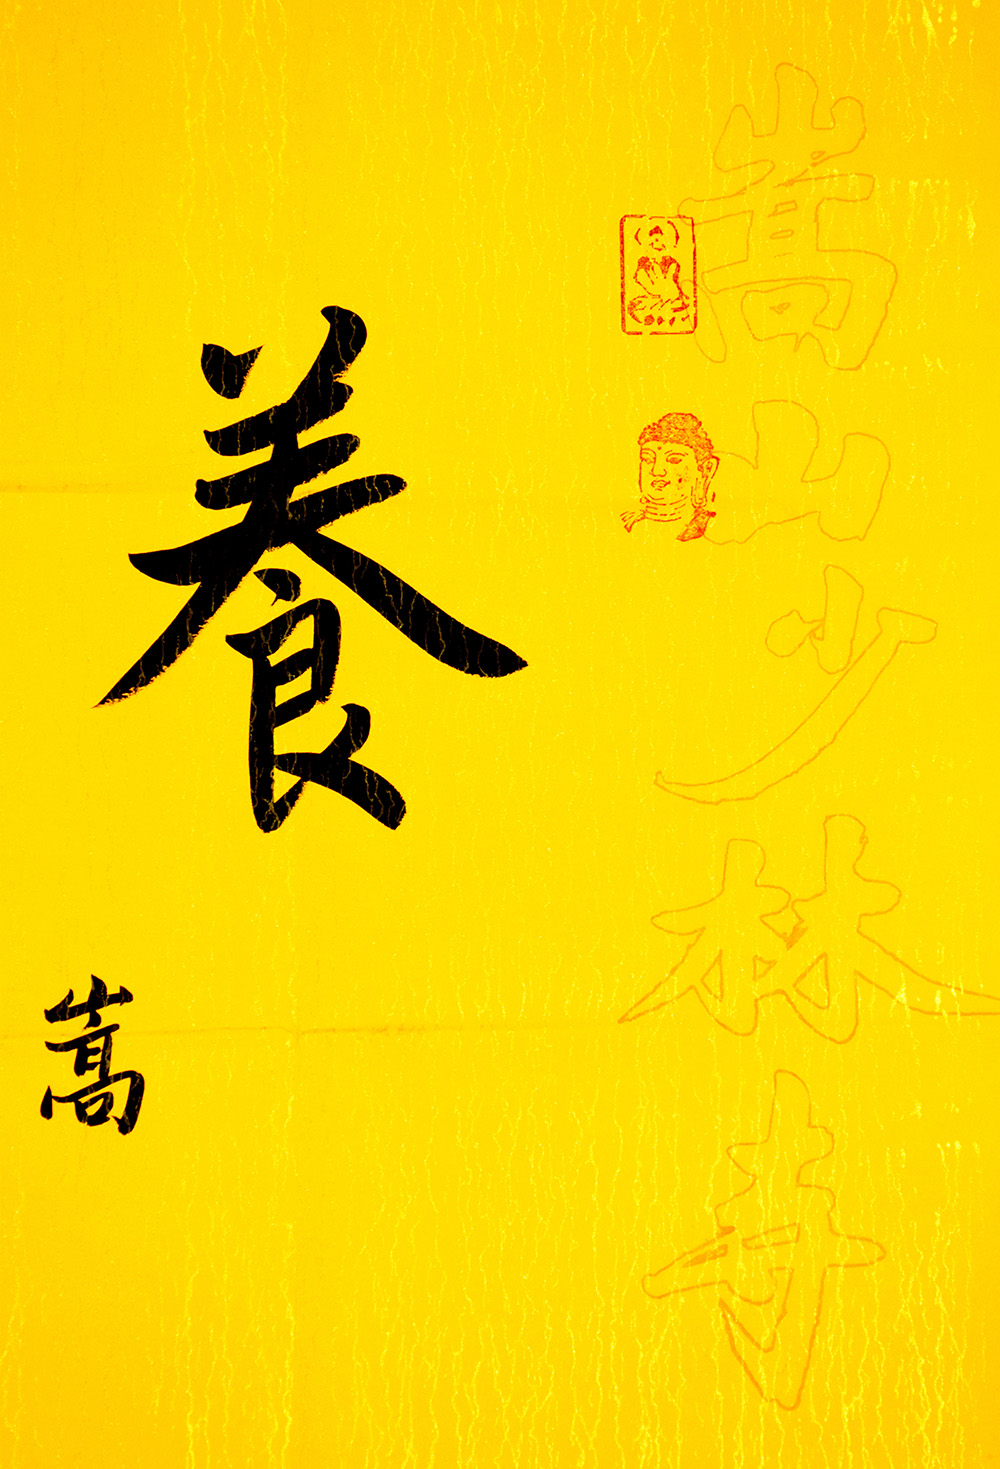 嵩山少林寺
養
嵩